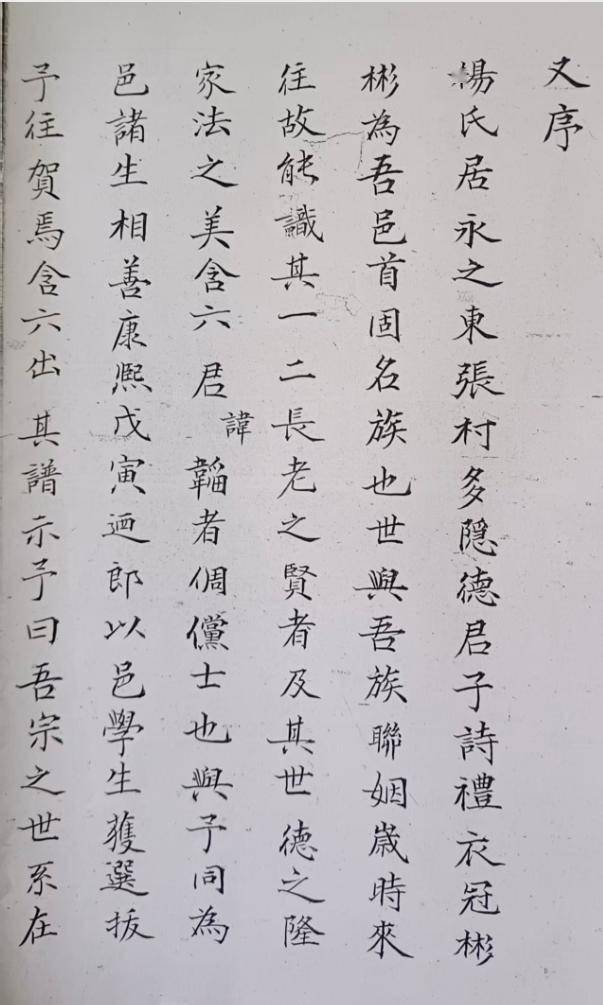 又序
楊氏居永之東張村多隠德君子詩禮衣冠彬
彬為吾邑首固名族也世與吾族聯姻歲時來
往故能識其一二長老之賢者及其世德之隆
家法之美含六君諱韜者倜儻士也與予同為
邑諸生相善康熙戊寅廼郎以邑學生獲選拔
予往賀焉含六出其譜示予曰吾宗之世系在